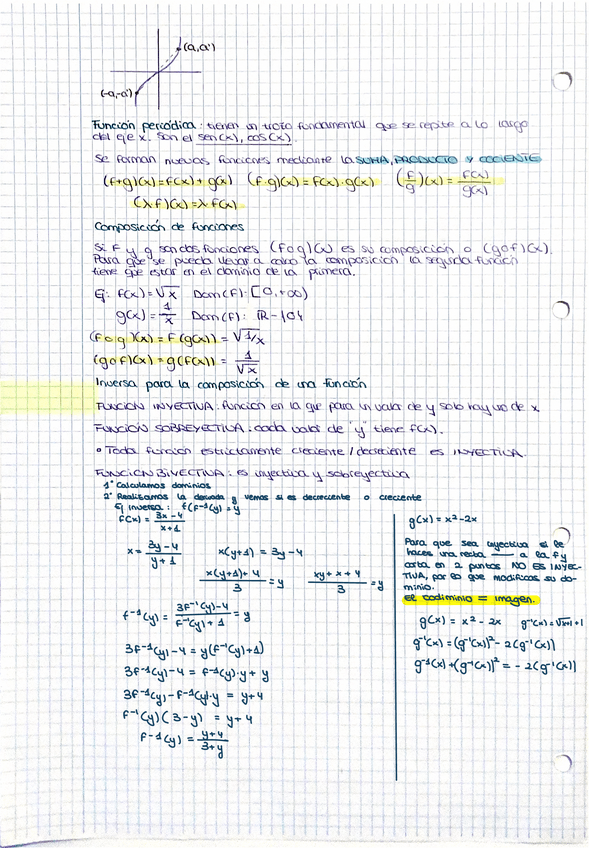 (a,a')
(-a,-a')
Función periódica: tienen un trozo fundamental que se repite a lo largo
del eje x. Son el sen(x), cos(x).
Se forman nuevas funciones mediante la SUMA, PRODUCTO Y COCIENTE
(f+g)(x)=f(x)+g(x) (f·g)(x)=f(x)·g(x) (f/g)(x)=f(x)/g(x)
(λ·f)(x)=λ·f(x)
Composición de funciones
Si f y g son dos funciones (fog)(x) es su composición o (gof)(x).
Para que se pueda llevar a cabo la composición la segunda función
tiene que estar en el dominio de la primera.
Ej: f(x)=√x Dom(f): [0,+∞)
g(x)=1/x Dom(f): ℝ-{0}
(fog)(x)=f(g(x))=√1/x
(gof)(x)=g(f(x))=1/√x
Inversa para la composición de una función
FUNCIÓN INYECTIVA: función en la que para un valor de y solo hay uno de x
FUNCIÓN SOBREYECTIVA: cada valor de "y" tiene f(x).
• Toda función estrictamente creciente/decreciente es INYECTIVA.
FUNCIÓN BIYECTIVA: es inyectiva y sobreyectiva
1º Calculamos dominios
2º Realizamos la derivada y vemos si es decreciente o creciente
Ej inversa: f(f⁻¹(y)=y
f(x)=3x-4/x+1
x=3y-4/y+1 x(y+1)=3y-4
x(y+1)+4/3=y xy+x+4/3=y
f⁻¹(y)=3f⁻¹(y)-4/f⁻¹(y)+1=y
3f⁻¹(y)-4=y(f⁻¹(y)+1)
3f⁻¹(y)-4=f⁻¹(y)·y+y
3f⁻¹(y)-f⁻¹(y)·y=y+4
f⁻¹(y)(3-y)=y+4
f⁻¹(y)=y+4/3+y
g(x)=x²-2x
Para que sea inyectiva si le
haces una recta — a la f y
corta en 2 puntos NO ES INYEC-
TIVA, por lo que modificas su do-
minio.
El codiminio = imagen.
g(x)=x²-2x g⁻¹(x)=√x+1+1
g⁻¹(x)=(g⁻¹(x))²-2(g⁻¹(x))
g⁻¹(x)+(g⁻¹(x))²=-2(g⁻¹(x))